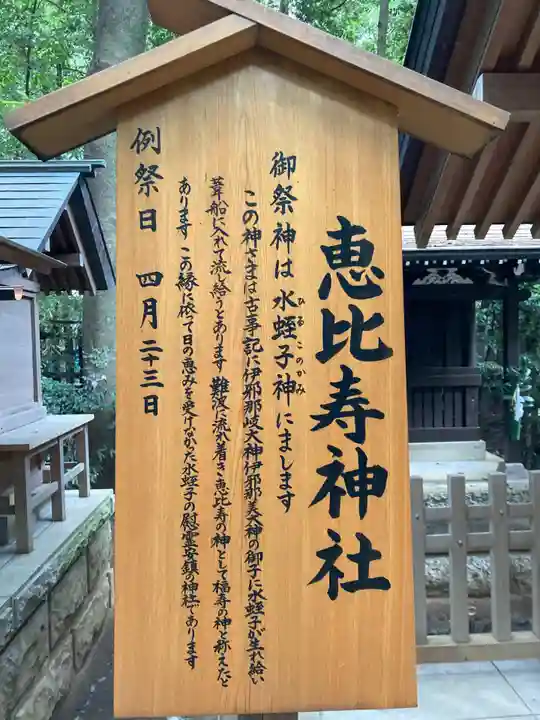 恵比寿神社
御祭神は水蛭子神にまします
ひるこのかみ
この神さまは古事記に伊邪那岐大神伊邪那美大神の御子に水蛭子が生れ給い
葦船に入れて流し給うとあります 難波に流れ着き恵比寿の神として福寿の神と称えたと
あります この縁に依って日の恵みを受けなかった水蛭子の慰霊安鎮の神社であります
例祭日 四月二十三日